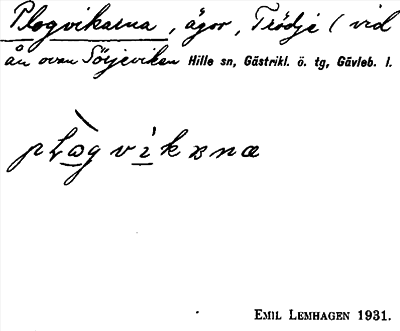 Plogvikarna, ägor, Trödje (vid
ån ovan Sörjeviken Hille sn, Gästrikl. ö. tg, Gävleb. l.
EMIL LEMHAGEN 1931.